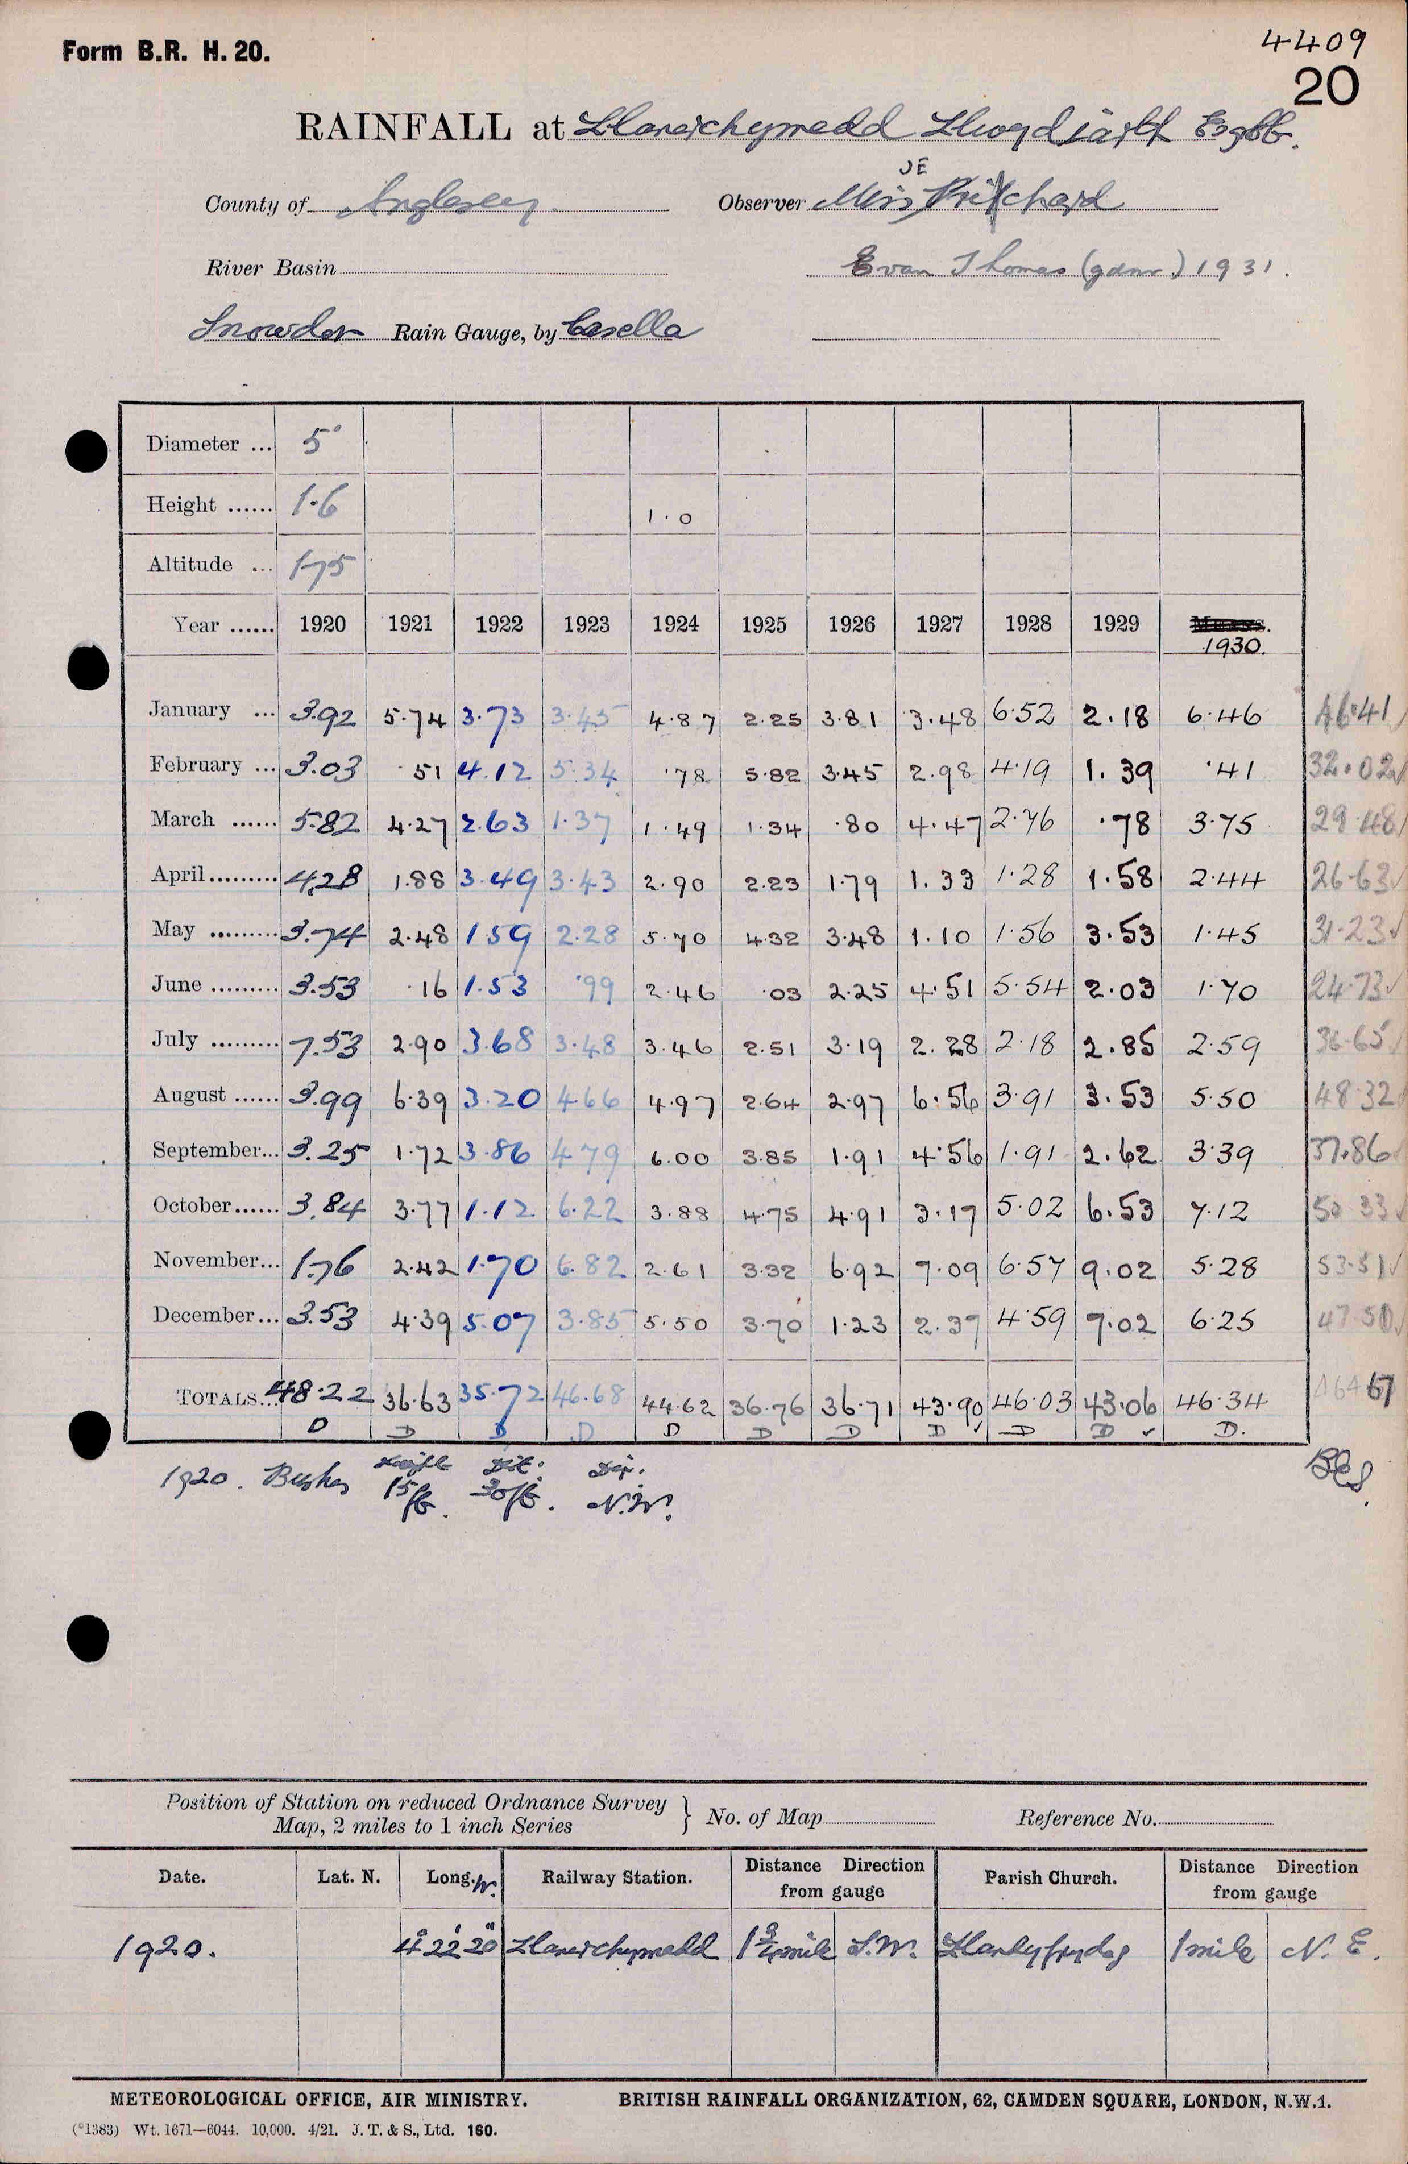 Form B.R. H. 20.
4409
20
RAINFALL at Llanerchymedd Llwydiarth Esgob.
County of Anglesey Observer Miss JE Pritchard
River Basin Evan Thomas (gdnr) 1931.
Snowdon Rain Gauge, by Casella
Diameter ... 5"
Height ...... 1·6 1·0
Altitude ... 175
Year ...... 1920 1921 1922 1923 1924 1925 1926 1927 1928 1929 1930.
January ... 3.92 5·74 3·73 3·45 4·87 2·25 3·81 3·48 6·52 2·18 6·46 46·41
February ... 3.03 ·51 4·12 5·34 ·78 5·82 3·45 2·98 4·19 1·39 ·41 32·02
March ...... 5.82 4·27 2·63 1·37 1·49 1·34 ·80 4·47 2·76 ·78 3·75 29·48
April......... 4.28 1·88 3·49 3·43 2·90 2·23 1·79 1·33 1·28 1·58 2·44 26·63
May ......... 3.74 2·48 1 59 2·28 5·70 4·32 3·48 1·10 1·56 3·53 1·45 31·23
June ......... 3.53 ·16 1·53 ·99 2·46 ·03 2·25 4·51 5·54 2·03 1·70 24·73
July ......... 7.53 2·90 3·68 3·48 3·46 2·51 3·19 2·28 2·18 2·85 2·59 36·65
August ...... 3.99 6·39 3·20 4 66 4·97 2·64 2·97 6·56 3·91 3·53 5·50 48·32
September... 3.25 1·72 3·86 4·79 6·00 3·85 1·91 4·56 1·91 2·62 3·39 37·86
October...... 3.84 3·77 1·12 6·22 3·88 4·75 4·91 3·17 5·02 6·53 7·12 50 33
November... 1.76 2·42 1·70 6·82 2·61 3·32 6·92 7·09 6·57 9·02 5·28 53·51
December... 3.53 4·39 5·07 3·85 5·50 3·70 1·23 2·37 4·59 7·02 6·25 47·50
TOTALS... 48·22 36·63 35·72 46·68 44·62 36·76 36·71 43·90 46·03 43·06 46·34 464 67
D D D D D D D D D D D.
1920. Bushes Height 15 ft. Dist. 30 ft. Dir. N.W.
Position of Station on reduced Ordnance Survey
Map, 2 miles to 1 inch Series } No. of Map Reference No.
Date. Lat. N. Long. W. Railway Station. Distance Direction from gauge Parish Church. Distance Direction from gauge
1920. 4° 22' 20" Llanerchymedd 1 3/4 mile S.W. Llandyfrydog 1 mile N. E.
METEOROLOGICAL OFFICE, AIR MINISTRY. BRITISH RAINFALL ORGANIZATION, 62, CAMDEN SQUARE, LONDON, N.W.1.
(*1383) Wt. 1671—6044. 10,000. 4/21. J. T. & S., Ltd. 160.